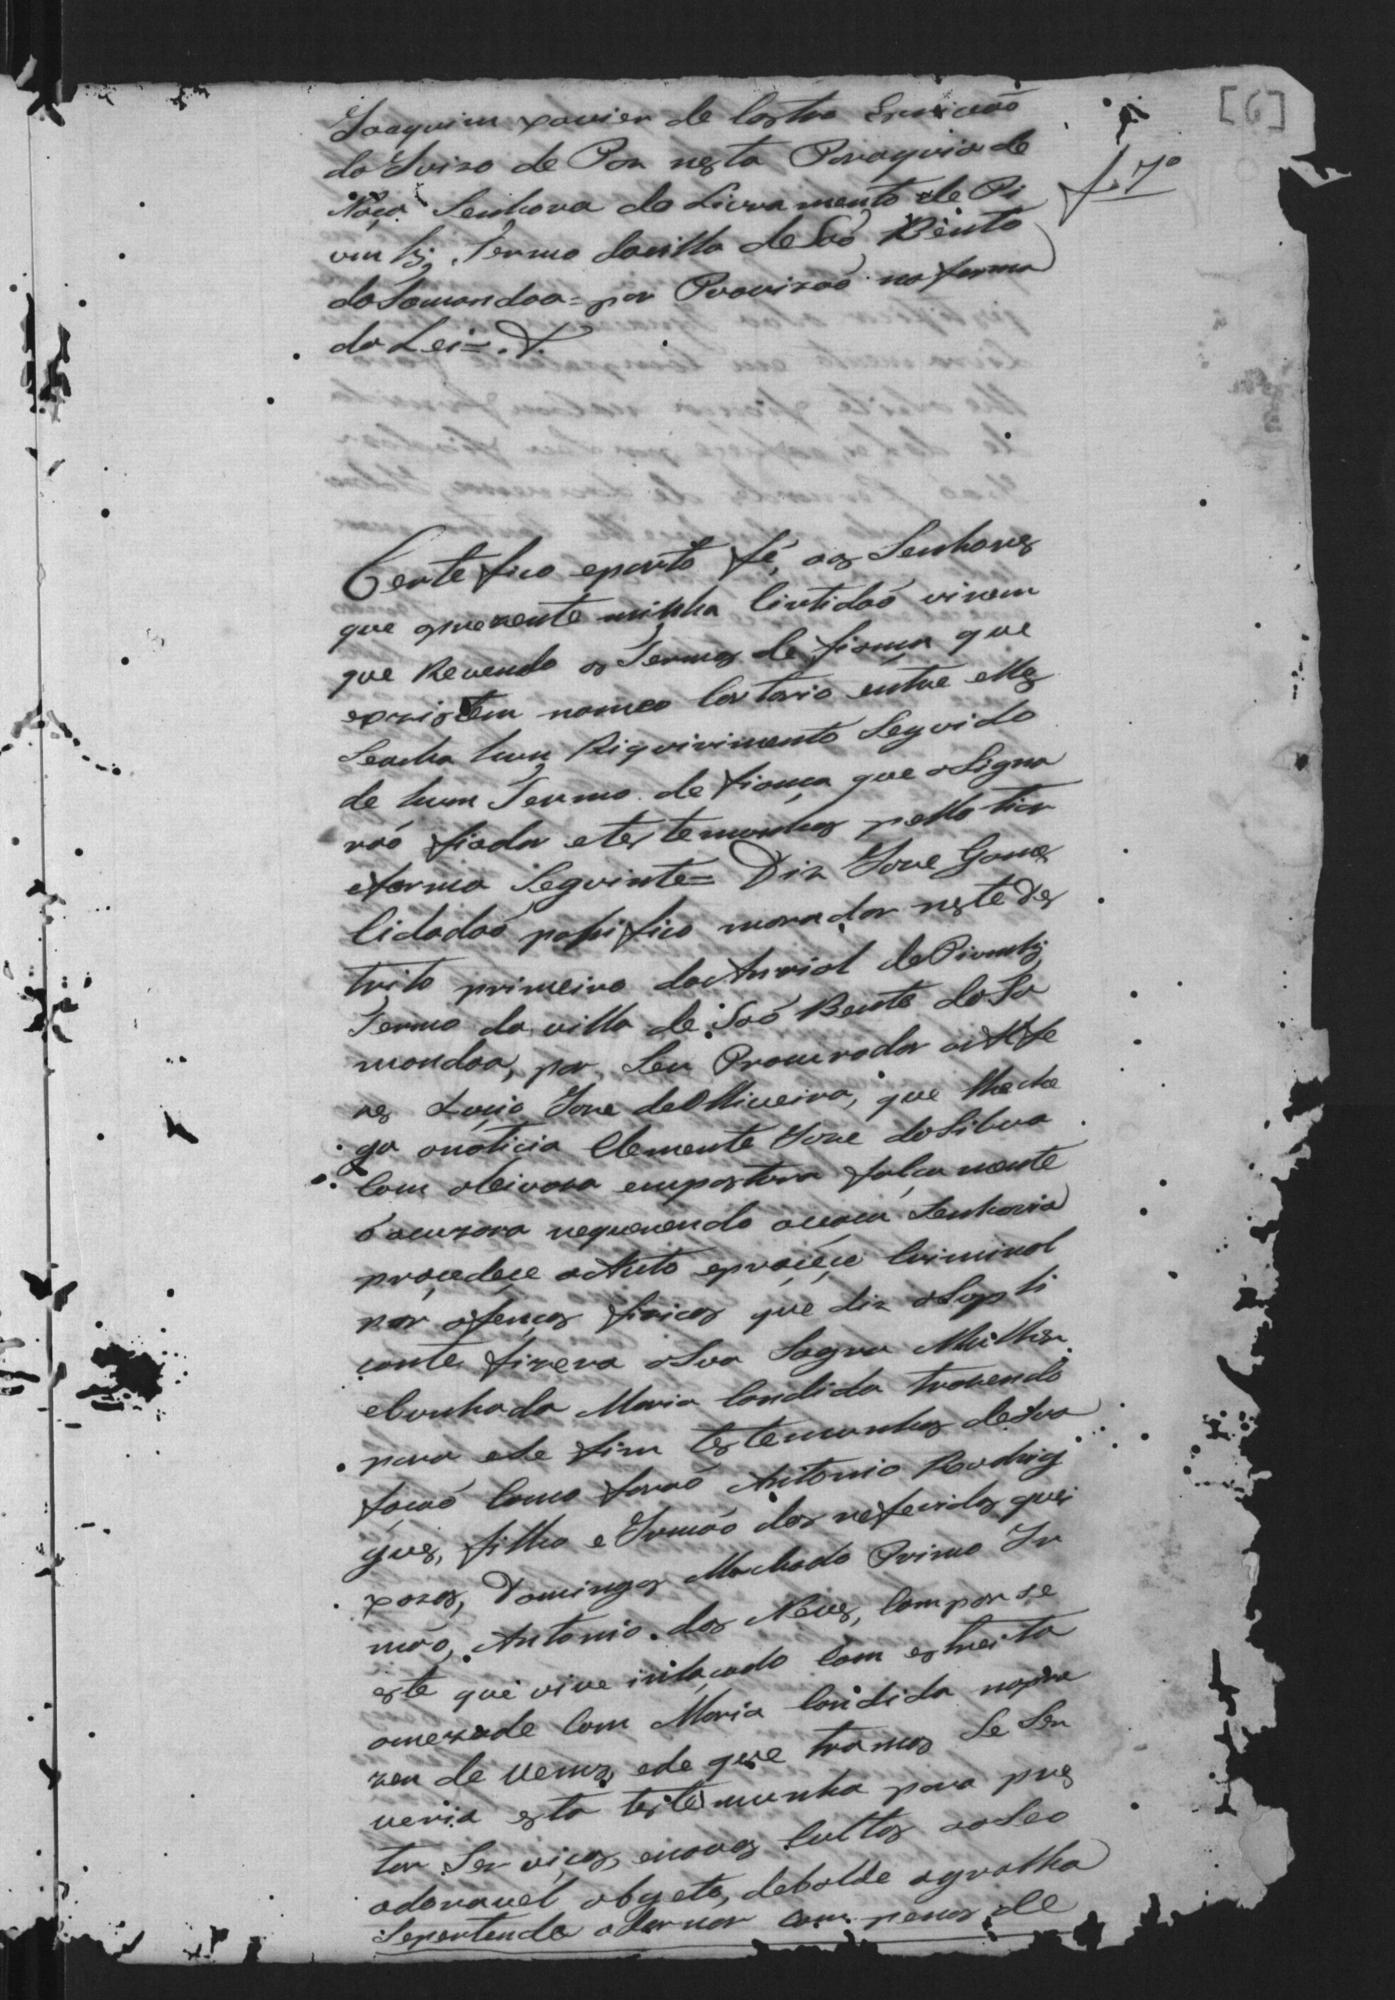 [6]
f. 7º
Joaquim xavier de Castro Escrivaõ
do Juizo de Paz nesta Paraquia de
Noça Senhora do Livramento de Pi
umhy, Termo davilla de Saõ Bento
do Tamandoa = por Provizaõ na forma
da Lei = V.
Certefico eporto fé, aos Senhores
que aprezente minha Certidaõ virem
que Revendo os Termos de fiança que
exzistem nomeo Cartorio entre elles
Seacha hum Riquirimento Seguido
de hum Termo de fiança que aSigna
raõ fiador etestemunhas pello thior
eforma Seguinte = Diz Joze Gomes
Cidadaõ passifico morador neste Des
trito primeiro doArrial de Piumhy,
Termo da villa de Saõ Bento doTa
mandoa, por Seu Procurador oAlfe
res Lucio Joze deOlliveira, que lheche
ga anoticia Clemente Joze daSilva
Com aleivoza empostura falçamente
o acuzara requerendo avaça Senhoria
procedece aAuto eproçeço Criminal
por ofenças fizicas que diz oSopli
cante fizera aSua Sogra Mulher
eCunhada Maria Candida trazendo
para ede fim testemunhas deSua
façaõ Como Saraõ Antonio Roudrig
gues, filho e Irmaõ dos referidos quei
xozos, Domingos Machado Primo Ir
maõ, Antonio dos Neves, Compor se
este que vive inlaçado Com estreita
amezade Com Maria Candida nospra
zeu de Venus, ede que tramas Se Ser
veria esta testemunha para pres
tar Serviços, enovos Cultos aoSeo
adoravel obgeto, debalde agralha
Sepertende adornar com penas de